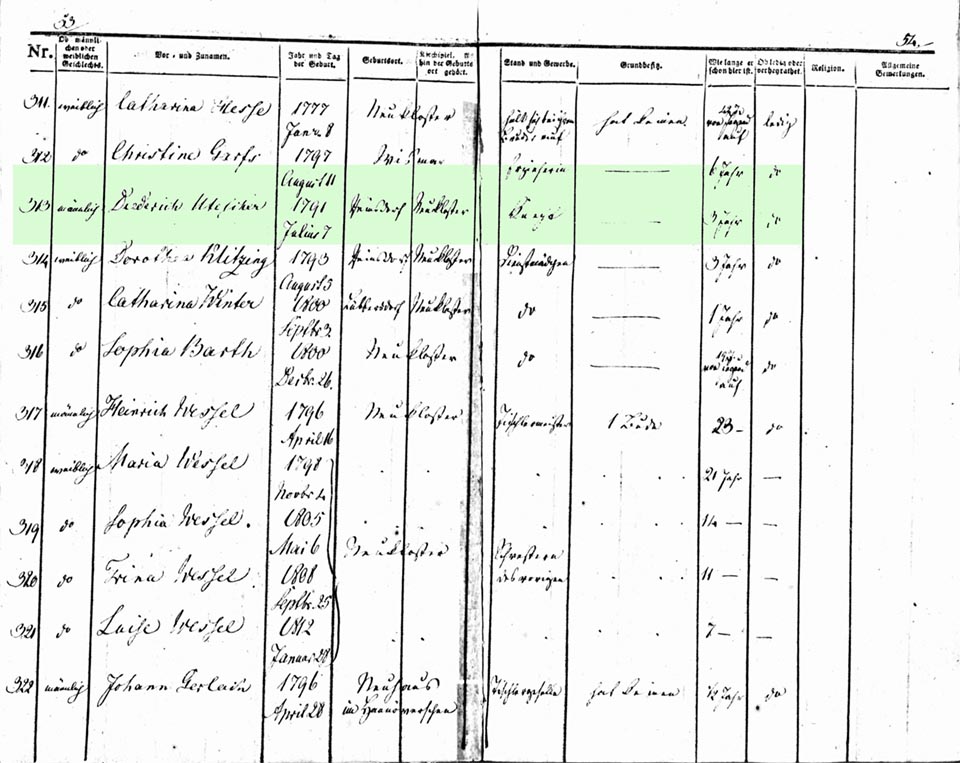 53
54.
Nr. Ob männlichen oder weiblichen Geschlechts. Vor- und Zunamen. Jahr und Tag der Geburt. Geburtsort. Kirchspiel, wohin der Geburtsort gehört. Stand und Gewerbe. Grundbesitz. Wie lange er schon hier ist. Ob ledig oder verheyrathet. Religion. Allgemeine Bemerkungen.
311. weiblich Catharina Hesse 1777 Neukloster hält sich bei ihrem hat keinen ledig
Janr. 8 Bruder auf
312 do Christine Garfs 1797 Wismar Erzieherin 6 Jahr do
August 11
313 männlich Diederich 1791 Reinsdorf Neukloster Knecht 3 Jahr do
Julius 7
314 weiblich Dorothea Klitzing 1793 Reinsdorf Neukloster Dienstmädchen 3 Jahr do
August 5
315 do Catharina Winter 1800 Lübbersdorf Neukloster do 1 Jahr do
Septbr 2
316 do Sophia Barth 1800 Neukloster do do
Decbr. 26.
317 männlich Heinrich Wessel 1796 Neukloster Tischlermeister 1 Bude 23 – do
April 16
318 weiblich Maria Wessel 1798 21 Jahr —
Novbr
319 do Sophia Wessel. 1805 14 — —
Mai 6 Neukloster Schwestern
320 do Trina Wessel 1808 des vorigen 11 — —
Septbr. 25
321 do Luise Wessel 1812 7 — —
Januar 28
322 männlich Johann Gerlach 1796 Neuhaus Tischlergeselle hat keinen ½ Jahr do
April 28 im Hannöverschen